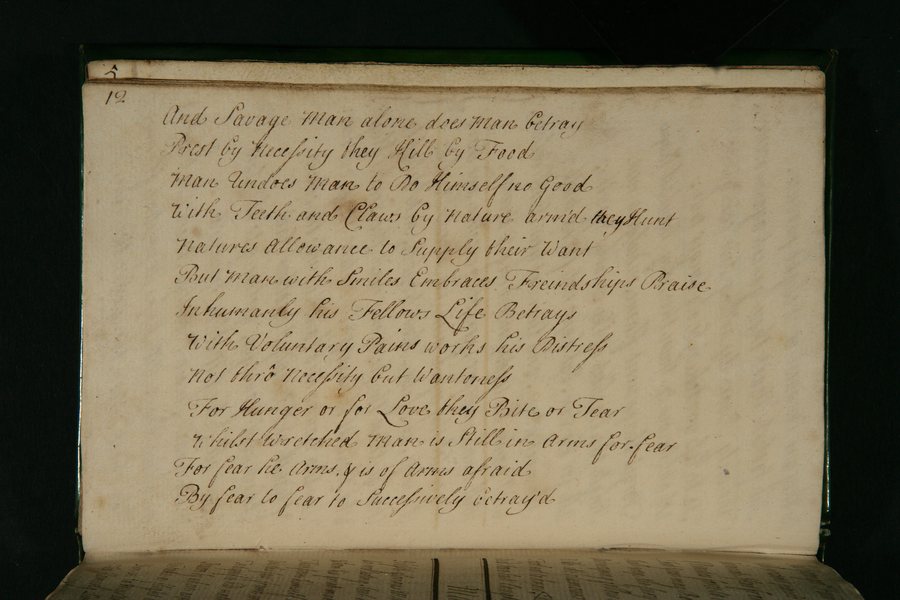 5
12
And Savage Man alone does Man betray
Prest by Necessity they Kill by Food
Man Undoes Man to Do Himself no Good
With Teeth and Claws by Nature arm'd they Hunt
Natures Allowance to Supply their Want
But Man with Smiles Embraces Freindships Praise
Inhumanly his Fellows Life Betrays
With Voluntary Pains works his Distress
Not thrô Necessity but Wantoness
For Hunger or for Love they Bite or Tear
Whilst wretched Man is Still in Arms for fear
For fear he Arms & is of Arms afraid
By fear to fear to Successively betray'd